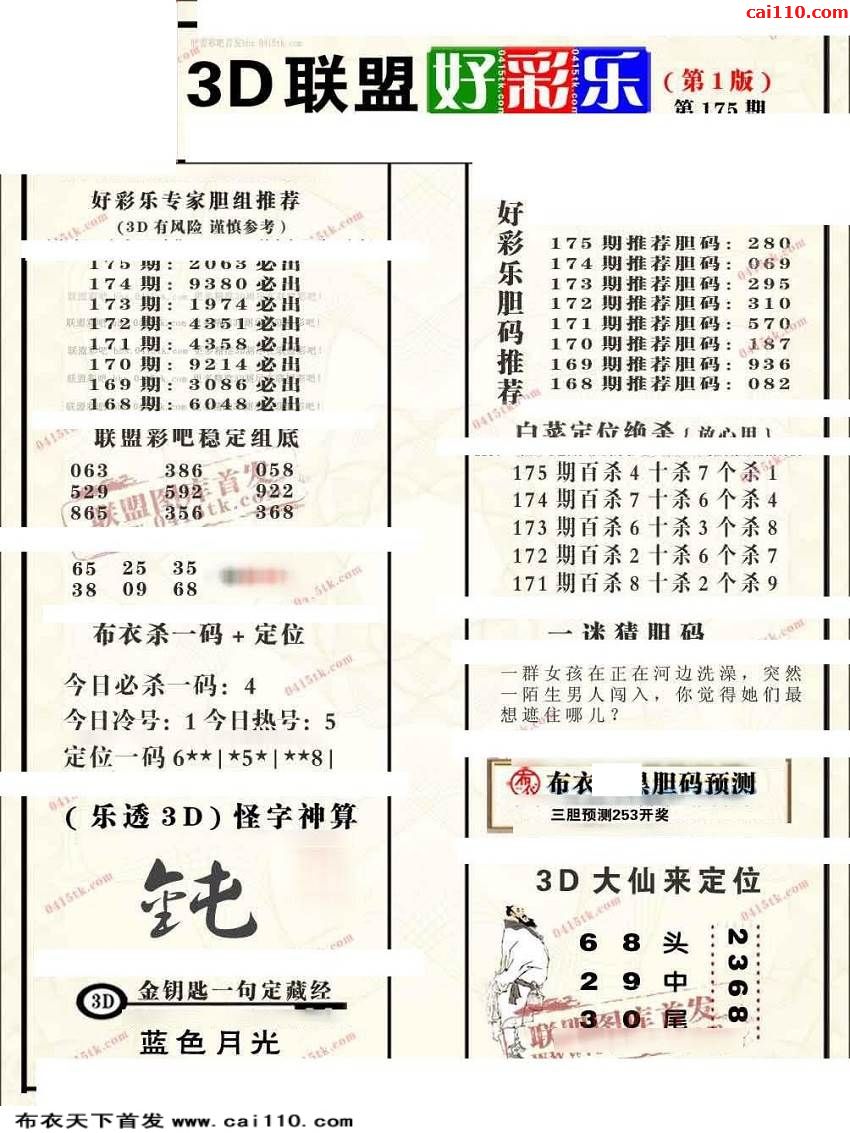 cai110.com
3D联盟好彩乐
(第1版)
第175期
好彩乐专家胆组推荐
(3D有风险 谨慎参考)
175期:2063必出
174期:9380必出
173期:1974必出
172期:4351必出
171期:4358必出
170期:9214必出
169期:3086必出
168期:6048必出
联盟彩吧稳定组底
063 386 058
529 592 922
865 356 368
65 25 35
38 09 68
布衣杀一码+定位
今日必杀一码:4
今日冷号:1今日热号:5
定位一码6**|*5*|**8|
(乐透3D)怪字神算
钝
3D 金钥匙一句定藏经
蓝色月光
好彩乐胆码推荐
175期推荐胆码:280
174期推荐胆码:069
173期推荐胆码:295
172期推荐胆码:310
171期推荐胆码:570
170期推荐胆码:187
169期推荐胆码:936
168期推荐胆码:082
白菜定位绝杀(放心用)
175期百杀4十杀7个杀1
174期百杀7十杀6个杀4
173期百杀6十杀3个杀8
172期百杀2十杀6个杀7
171期百杀8十杀2个杀9
一谜猜胆码
一群女孩在正在河边洗澡,突然
一陌生男人闯入,你觉得她们最
想遮住哪儿?
布衣 胆码预测
三胆预测253开奖
3D大仙来定位
6 8 头
2 9 中
3 0 尾
2368
联盟图库首发
0415tk.com
布衣天下首发 www.cai110.com